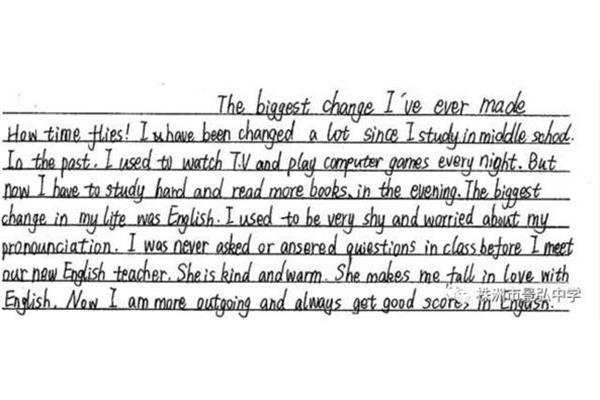 The biggest change I've ever made
How time flies! I have been changed a lot since I study in middle school.
In the past. I used to watch T.V and play computer games every night. But
now I have to study hard and read more books. in the evening. The biggest
change in my life was English. I used to be very shy and worried about my
pronounciation. I was never asked or ansered quiestions in class before I meet
our new English teacher. She is kind and warm. She makes me fall in love with
English. Now I am more outgoing and always get good scores in English.
株洲市景弘中学